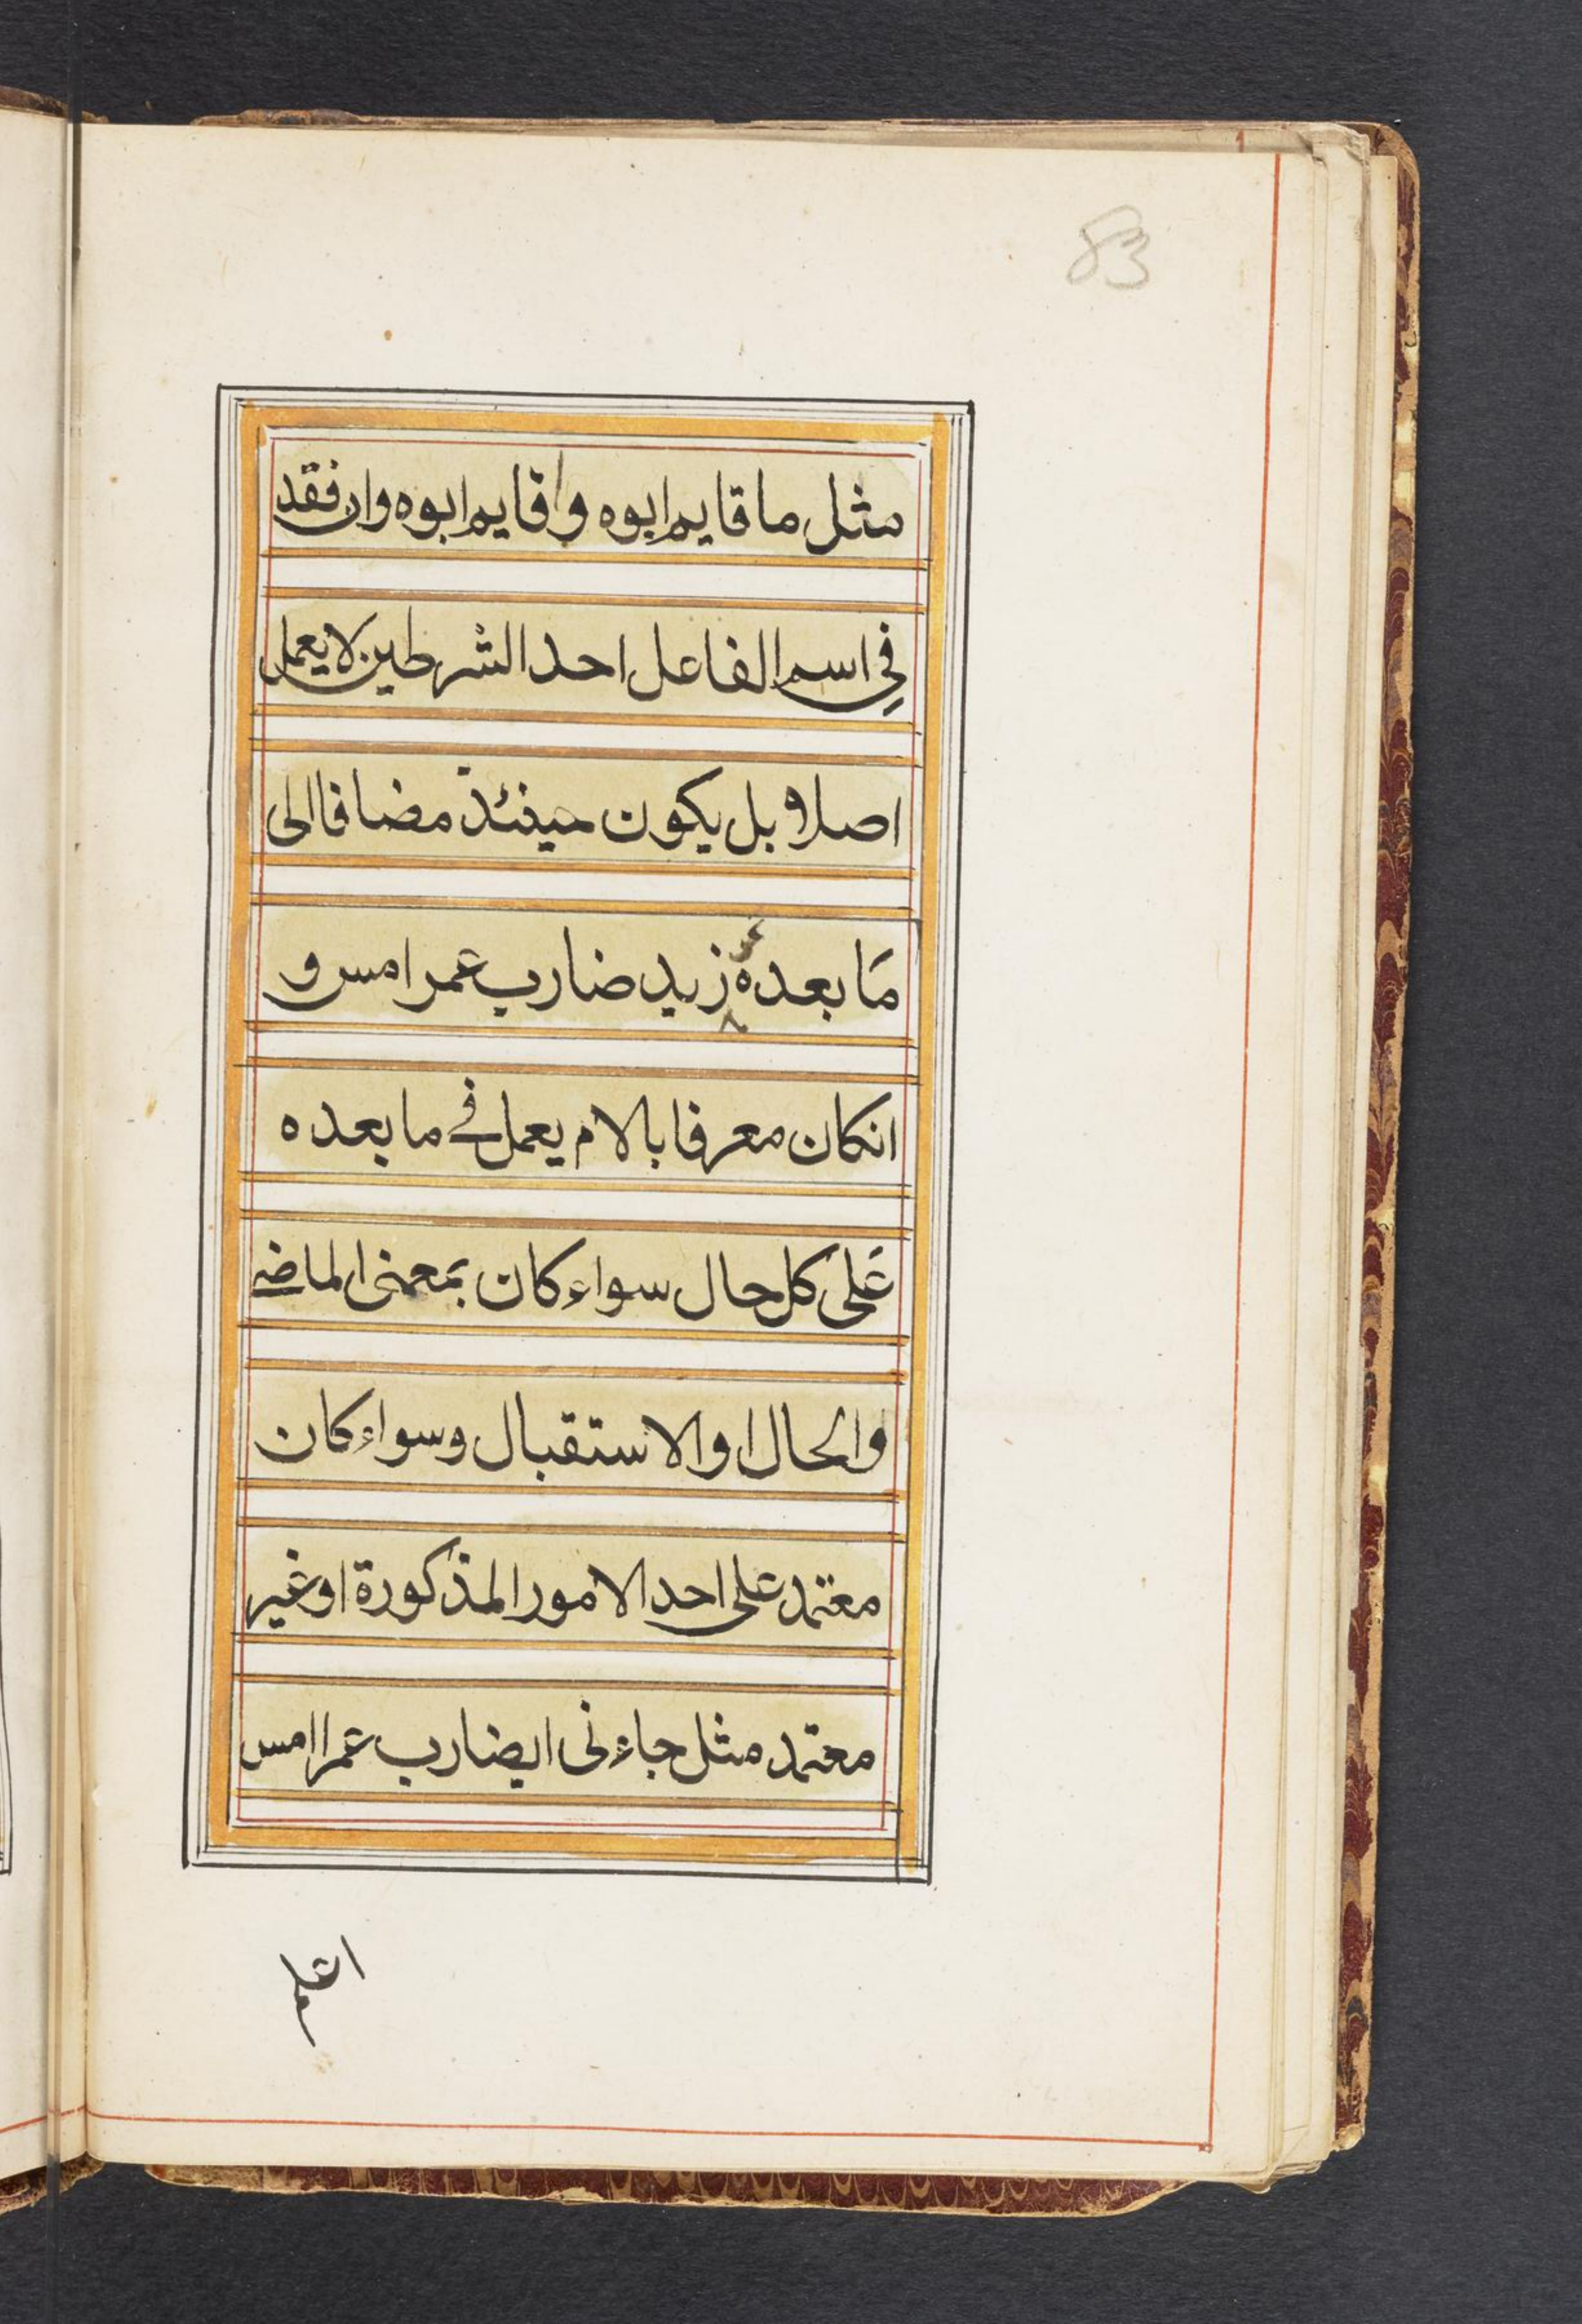 83
مثل ما قايم ابوه واقايم ابوه وان فقد
في اسم الفاعل احد الشرطين لا يعمل
اصلا بل يكون حينئذ مضافا الى
ما بعده زيد ضارب عمر امس و
انكان معرفا بالام يعمل في ما بعده
على كل حال سواء كان بمعنى الماضي
والحال او الاستقبال وسواء كان
معتمد على احد الامور المذكورة او غير
معتمد مثل جاءنى ايضارب عمرا امس